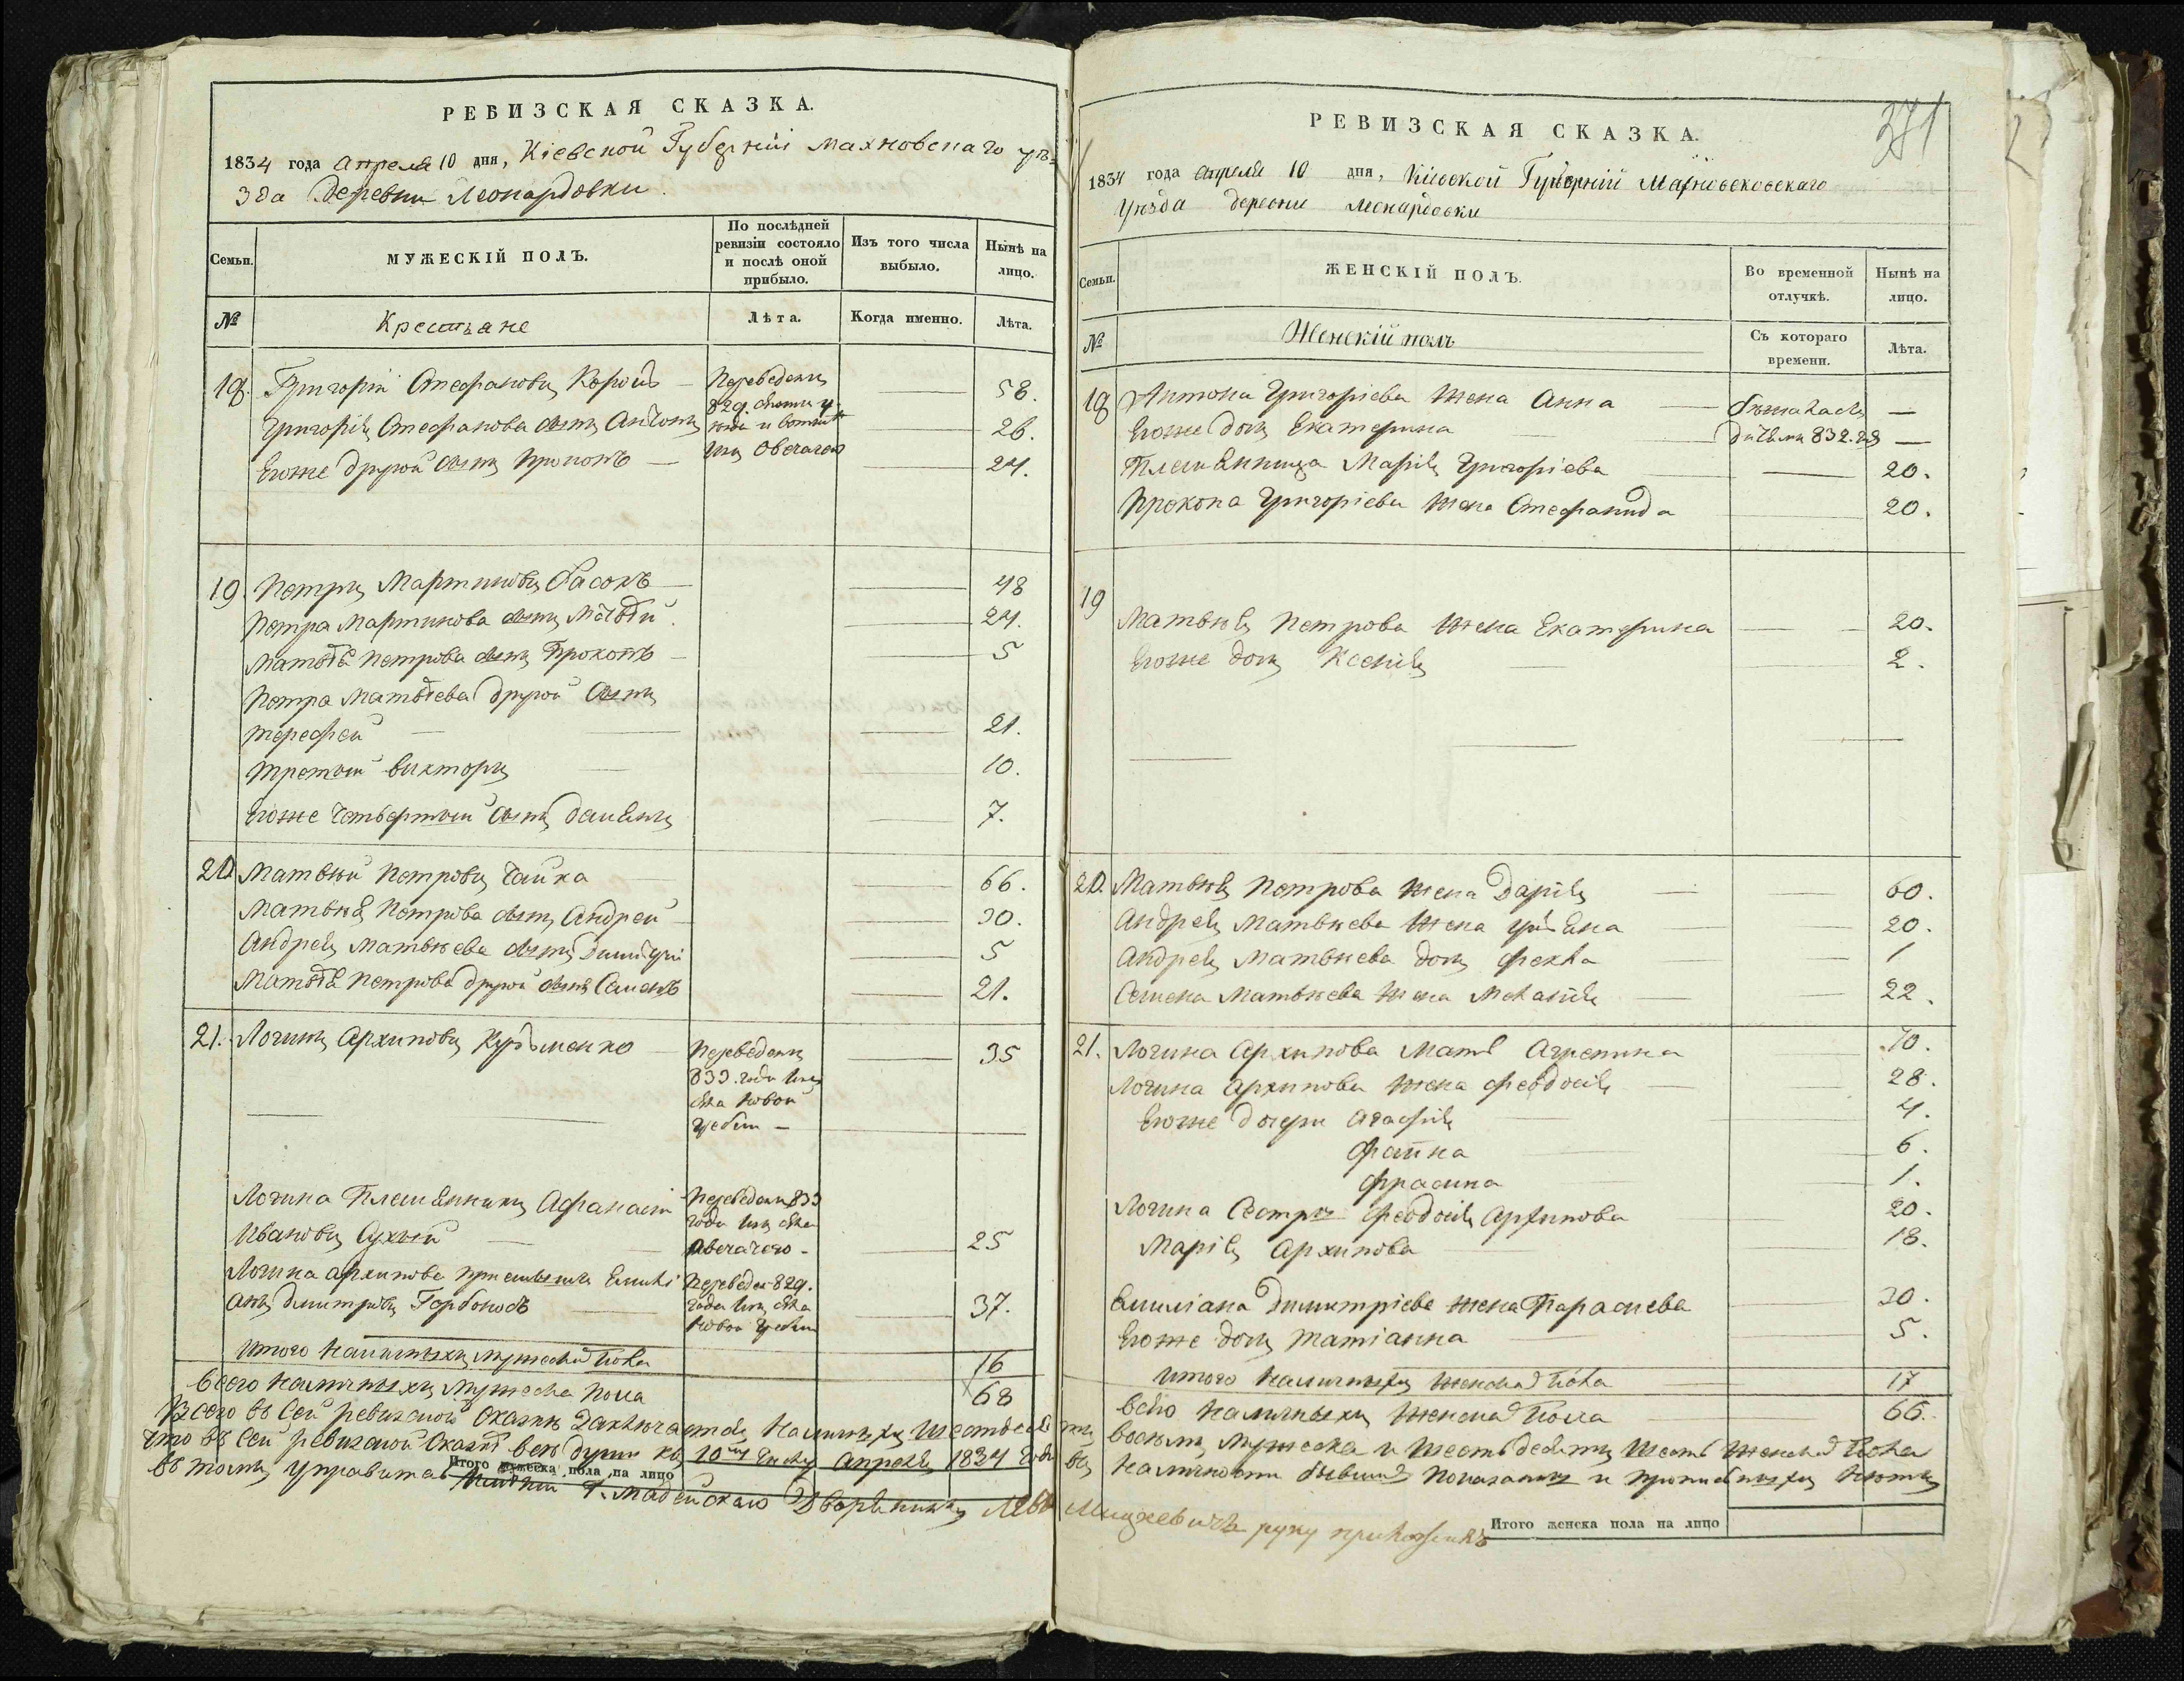 РЕВИЗСКАЯ СКАЗКА.
1834 года апреля 10 дня, Кіевской Губерніи Махновскаго уѣ-
зда Деревни Леонардовки.
Семьи.
МУЖЕСКІЙ ПОЛЪ.
По послѣдней ревизіи состояло и послѣ оной прибыло.
Изъ того числа выбыло.
Нынѣ на лицо.
№
Крестьяне
Лѣта.
Когда именно.
Лѣта.
18. Григорій Стефановъ Король 58.
Переведенъ
829.
Григорія Стефанова сынъ Антонъ 26.
Егоже другой сынъ Прокопъ 24.
19. Петръ Мартиновъ Басокъ 48
Петра Мартинова сынъ Матвѣй 24.
Матвѣя Петрова сынъ Прокопъ 5
Петра Матвѣева другой сынъ
Терефей 21.
третий Викторъ 10.
Егоже четвертый сынъ Дамянъ 7.
20 Матвѣй Петровъ Чайка 66.
Матвѣя Петрова сынъ Андрей 30.
Андрея Матвѣева сынъ Димитрій 5
Матвѣя Петрова другой сынъ Семенъ 21.
21. Логинъ Архиповъ Кузьменко 35
Переведенъ
833. года изъ
села Новой
Гребли
Логина Племянникъ Афанасій
Ивановъ Сухый 25
Переведенъ 833
года изъ села
Овечачего
Логина Архипова приемышъ Емилі
анъ Дмитровъ Горбоносъ 37.
Переведен 829.
года изъ села
Новой Гребли
Итого наличныхъ мужеска пола 16
Всего наличныхъ мужеска пола 68
Всего въ сей ревизской сказкѣ заключается наличныхъ шестьдесятъ
что въ сей ревизской сказкѣ всѣ души къ 10му числу апреля 1834 года
Итого мужеска пола на лицо
въ томъ управитель Имѣнія Г. Мадейскаго Дворянинъ Левъ
РЕВИЗСКАЯ СКАЗКА.
371
1834 года апреля 10 дня, Кіевской Губерніи Махновсковскаго
Уѣзда деревни Леонардовки
Семьи.
ЖЕНСКІЙ ПОЛЪ.
Во временной отлучкѣ.
Нынѣ на лицо.
№
Женскій полъ
Съ котораго времени.
Лѣта.
18 Антона Григоріева жена Анна —
Егоже дочь Екатерина —
Племянница Марія Григоріева 20.
Прокопа Григоріева жена Стефанида 20.
19
Матвѣя Петрова жена Екатерина 20.
Егоже дочь Ксенія 2.
20. Матвѣя Петрова жена Дарія 60.
Андрея Матвѣева жена Уліяна 20.
Андрея Матвѣева дочь Фекла 1
Семена Матвѣева жена Меланія 22.
21. Логина Архипова мать Агрепина 70.
Логина Архипова жена Феодосія 28.
Егоже дочери Агафія 4.
Фатина 6.
Фрасина 1.
Логина Сестры Феодосія Архипова 20.
Марія Архипова 18.
Емиліана Димитріева жена Параскева 30.
Егоже дочь Татіанна 5.
Итого наличныхъ женска пола 17
Всего наличныхъ женска пола 66.
восемь мужеска и шестьдесятъ шесть женска пола
наличности бывшия показаны и прописныхъ нѣтъ
Мицкевичъ руку приложилъ
Итого женска пола на лицо